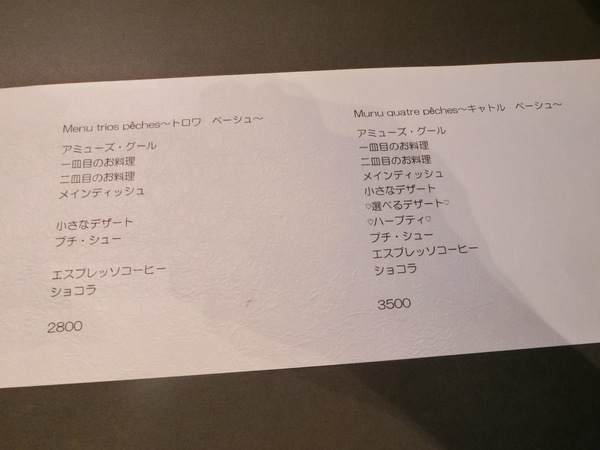 Menu trios pêches～トロワ　ペーシュ～
アミューズ・グール
一皿目のお料理
二皿目のお料理
メインディッシュ
小さなデザート
プチ・シュー
エスプレッソコーヒー
ショコラ
2800
Munu quatre pêches～キャトル　ペーシュ～
アミューズ・グール
一皿目のお料理
二皿目のお料理
メインディッシュ
小さなデザート
♡選べるデザート♡
♡ハーブティ♡
プチ・シュー
エスプレッソコーヒー
ショコラ
3500